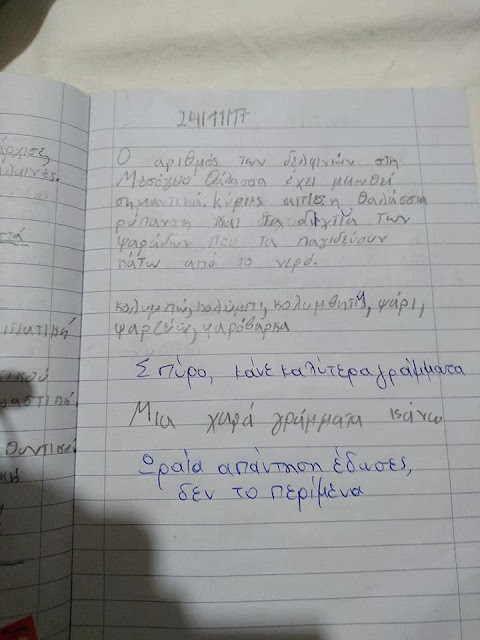 άρχισε
24/11/17
Ο αριθμός των δελφινιών στη
Μεσόγειο θάλασσα έχει μειωθεί
σημαντικά, κύρια αιτία η θαλάσσια
ρύπανση και τα δίχτυα των
ψαράδων που τα παγιδεύουν
κάτω από το νερό.
κολυμπώ, κολύμπι, κολυμβητής, ψάρι,
ψαρεύω, ψαρόβαρκα
Σπύρο, κάνε καλύτερα γράμματα
Μια χαρά γράμματα κάνω
Ωραία απάντηση έδωσες,
δεν το περίμενα